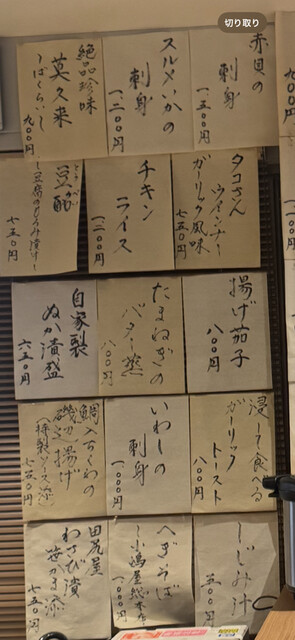 切り取り
赤貝の
刺身
一、五〇〇円
スルメいかの
刺身
一、二〇〇円
絶品珍味
莫久来
しばくらいし
九〇〇円
タコさん
ウインナー
ガーリック風味
七五〇円
チキン
ライス
一、二〇〇円
豆酩
〜豆腐のもろみ漬け〜
七五〇円
揚げ茄子
八〇〇円
たまねぎの
バター焼
八〇〇円
自家製
ぬか漬盛
六五〇円
浸して食べる
ガーリック
トースト
八〇〇円
いわしの
刺身
一、〇〇〇円
鯛入ちくわの
磯辺揚げ
(特製ソース添)
七五〇円
しじみ汁
五〇〇円
へぎそば
〜小嶋屋総本店〜
一、〇〇〇円
田尻屋
わさび漬
七五〇円